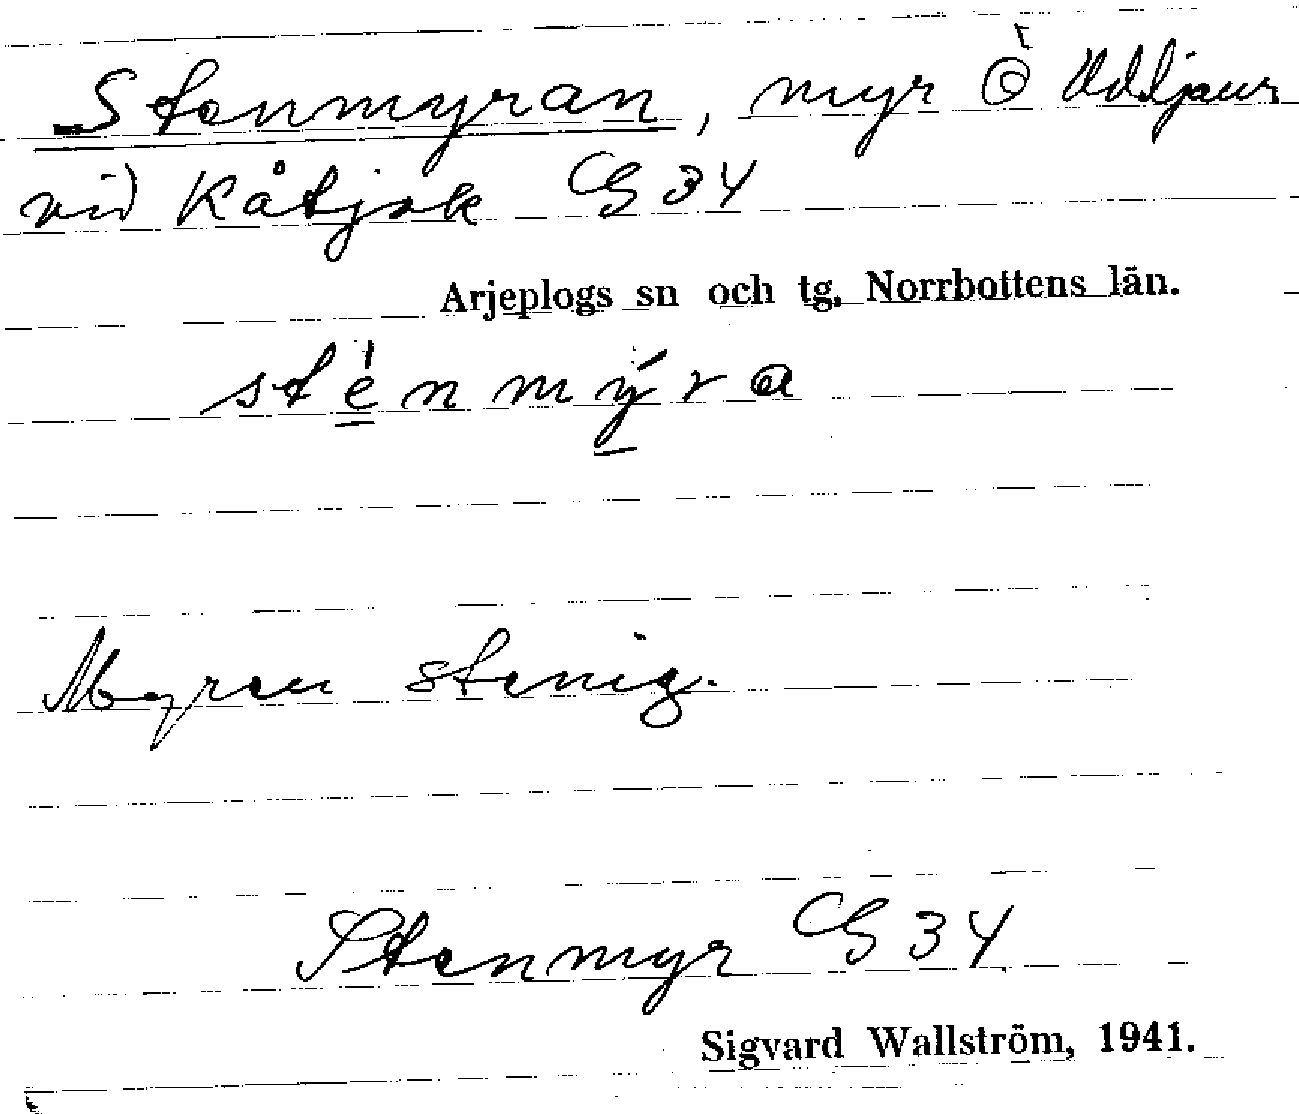 Stenmyran, myr Ö Uddjaur
vid Kåtjok G 34
Arjeplogs sn och tg, Norrbottens län.
sténmýra
Myren stenig.
Stenmyr G 34
Sigvard Wallström, 1941.